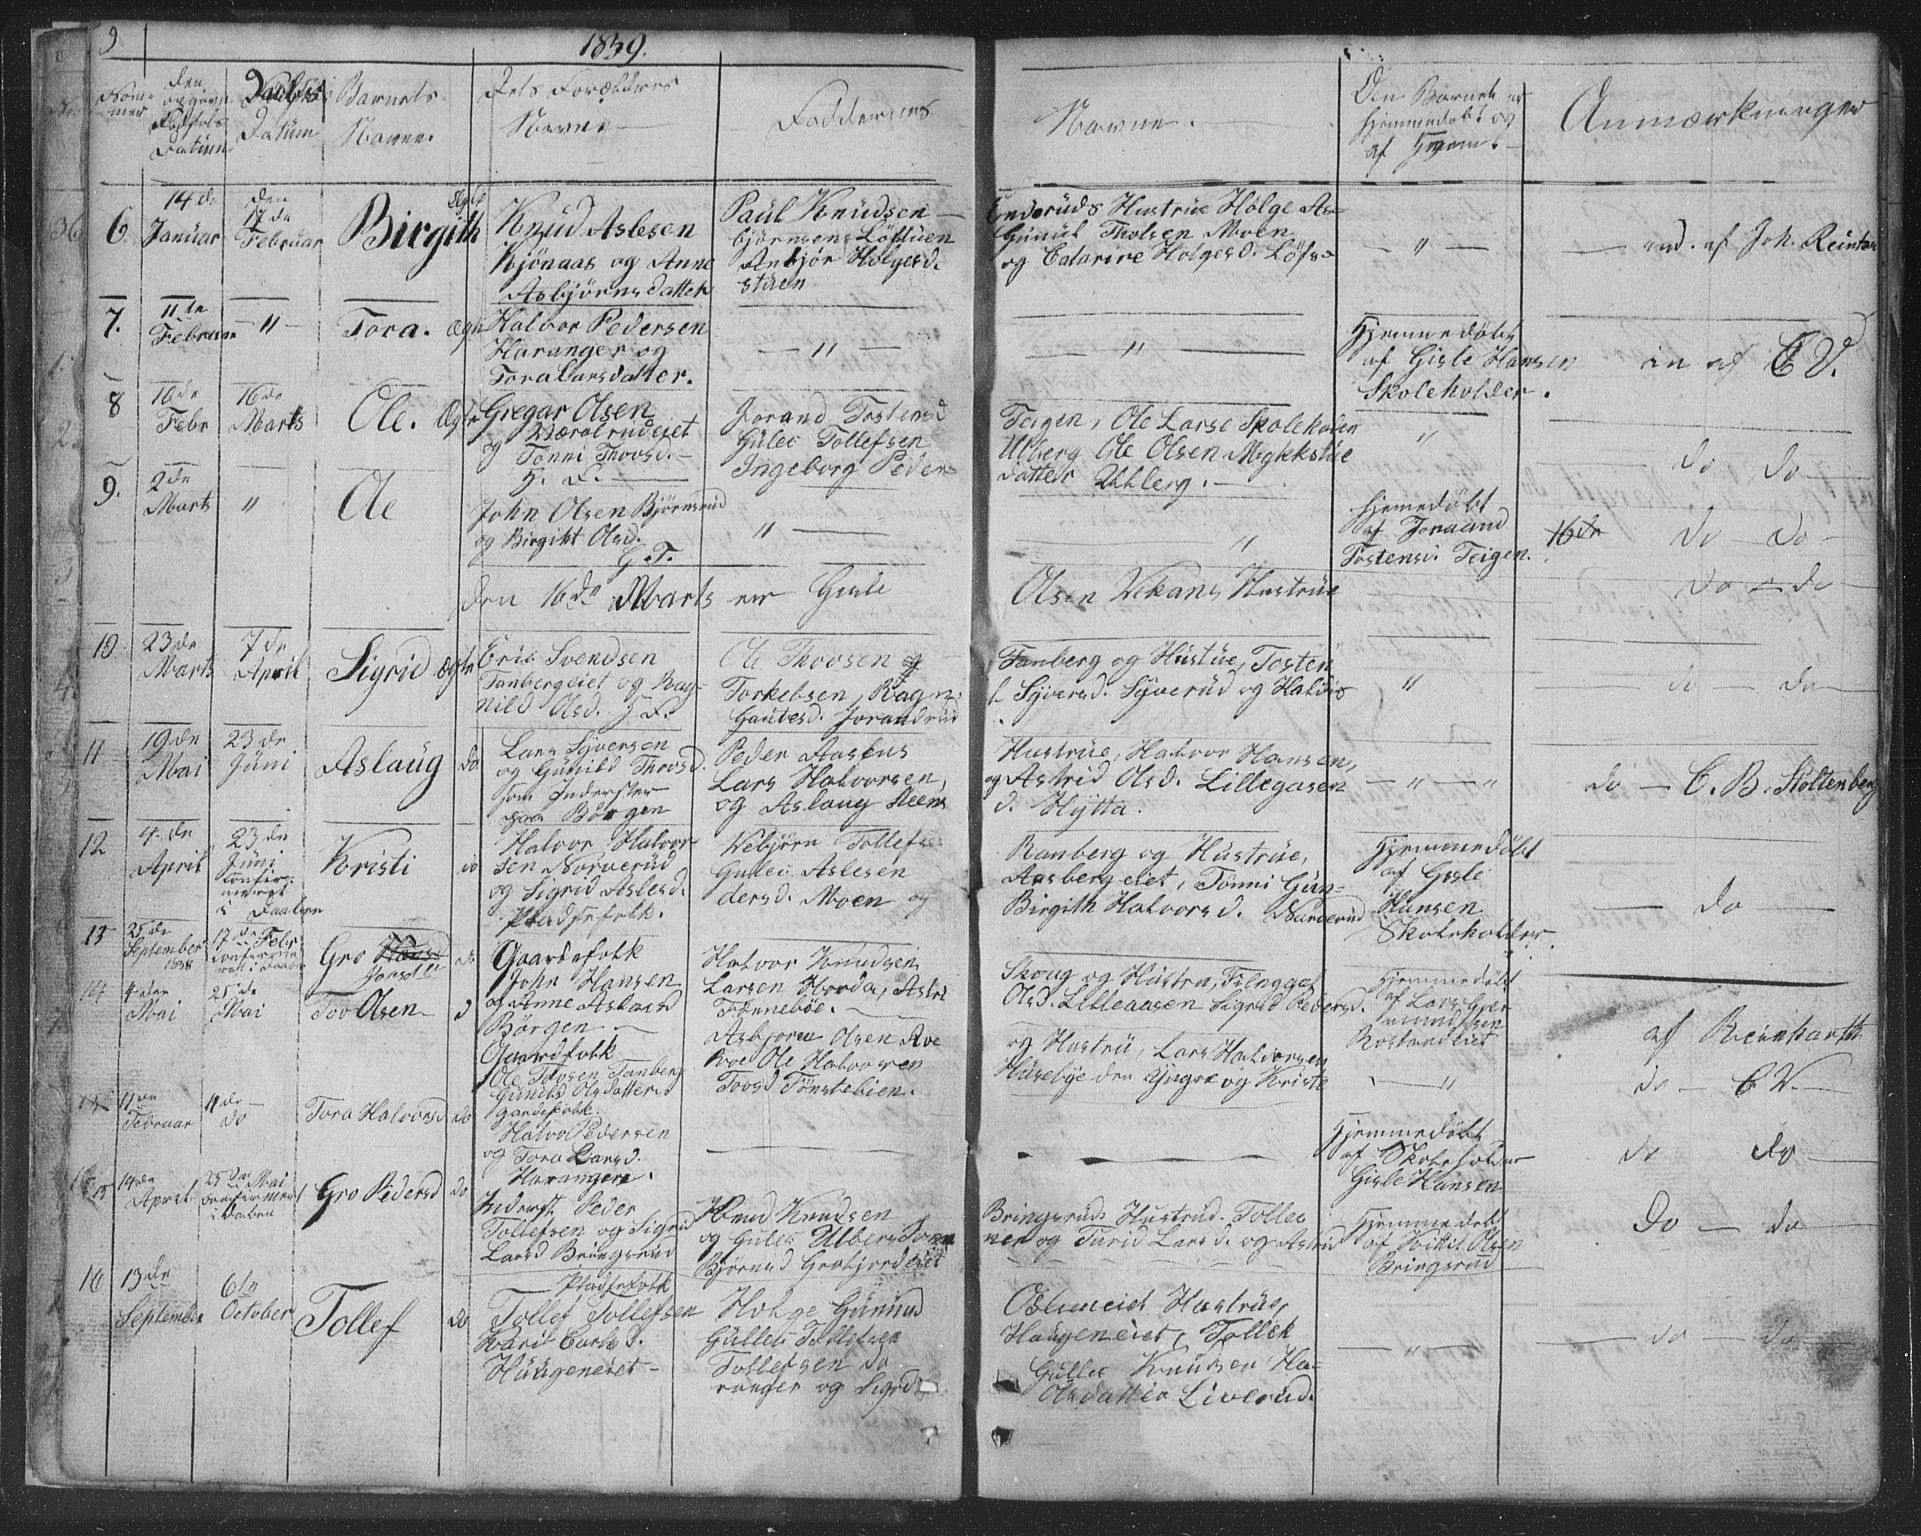 9
1839.
Num-
mer
den
opgivne
Fødsels
Datum
Daabs
Datum
Barnets
Navne.
Dets Forældres
Navne
Fadderenes
Navne.
Om Barnet er
hjemmedøbt og
af Hvem.
Anmærkninger
6
14de
Januar
den
17de
Februar
Birgith
Ægte
Knud Aslesen
Kjønaas og Anne
Asbjørnsdatter
Paul Knudsen
bjørnsens Løftuen
Anbjør Holgesd.
stuen
Enderuds Hustrue Holge As-
Gunul Tholsen Moen
og Catarine Holgesd. Løfs-
— " —
af Joh. Reinhar
7.
11te
Februar
— " —
Tora.
Ægte
Halvor Pedersen
Haranger og
Tora Larsdatter.
— " —
— " —
Hjemmedøbt
af Gisle Hansen
Skoleholder.
af C V.
8
16de
Febr
16de
Marts
Ole.
Ægte
Gregar Olsen
Wæralrudeiet
og Tønni Thovsd.
Jorand Tostensd
Gulec Tollefsen
Ingeborg Peders
Teigen, Ole Larse Skoleholder
Ulberg Ole Olsen Megkstue
datter Ulberg.
"
do do
9.
2de
Marts
"
Ole
John Olsen Bjørnsrud
og Birgitt Olsd.
G. F.
"
"
hjemedøbt
af Joraand
Tostensd. Teigen.
16de
do — do
den 16de Marts er Gisle
Olsen Vekans Hustrue
do — do
10
23de
Marts
7de
April
Sigrid
Ægte
Eric Svendsen
Tanbergeiet og Rag-
nild Olsd.
Ole Thovsen og
Torkelsen, Ragn:
Gautesd. Jorandrud
Tanberg og Hustue, Tosten
Syversd. Syverud og Haldis
"
do — do
11
19de
Mai
23de
Juni
Aslaug
do
Lars Syversen
og Gunild Thovsd.
som Inderster
paa Børgen
Peder Aaslus
Lars Halvorsen,
og Aslaug Steens
Hustrue, Halvor Hansen,
og Astrid Olsd. Lillegasen
d. Hytta.
— " — "
do — C. B. Stoltenberg
12
4de
April
23de
Juni
confir-
meret
i Daaben
Kristi
do
Halvor Halvor-
sen Norverud
og Sigrid Aslesd.
Pladsefolk.
Vebjørn Tollefse
Gulec Aslesen
dersd. Moen og
Ranberg og Hustrue,
Aasbergeiet, Tønni Gun-
Birgith Halvorsd. Narverud
Hjemmedøbt
af Gisle
Hansen
Skoleholder
— do —
13
25de
September
1838
17de Febr
confirme
ret i Daaben
Gro
Jonsdtt
do
Gaardefolk
John Hansen
og Anne Aslacsd
Børgen
Halvor Knudsen
Larsen Hovda, Astri
Fonnebøe.
Skoug og Hustru,
Olsd. Lilleaasen Sigrid Pedersd.
Hjemmedøbt
af Lars Gut-
mundsen
Roslandeiet
af Reinhardt
14
4de
Mai
25de
Mai
Tov Olsen
d
Gaardfolk
Ole Tovsen Tanberg
Gunild Olsdatter
Asbjorn Olsen Roe
Boe Ole Halvorsen
Tovsd Tønstebien.
og Hustru, Lars Halvorsen
Husebye den Yngre og Kristi
"
do — C V —
15
11de
Februar
11de
do
Tora Halvorsd
do
Gardefolk.
Halvo Pedersen
og Tora Larsd.
Haranger.
Hjemmedøbt
af Skoleholder
Gisle Hansen
do do
15
14de
April
25de Mai
confirmert
i Daben
Gro Pedersd
do
Inderst Peder
Tollefsen og Sigrid
Larsd Bringsrud
Knud Knudsen
og Gulec Ulbers Tønn
Bjørnsd Grobjordeiet
Bringsruds Hustrud. Tollec
ner og Turid Larsd. og Astrid
Hjemmedøbt
af Kittil Olsen
Bringsrud
Do — do
16
13de
September
6te
October
Tollef
do
Pladsefolk
Tollef Tollefsen
Kari Carlsd.
Haugeneiet
Holge Gunnud
Gullec Tollefsen
Tollefsen do
ranger og Sigrd
Oslineiet Hustrue,
Haugeneiet, Tollek
Gullec Knudsen Ha-
Olsdatter Liverud.
— " —
— do — do